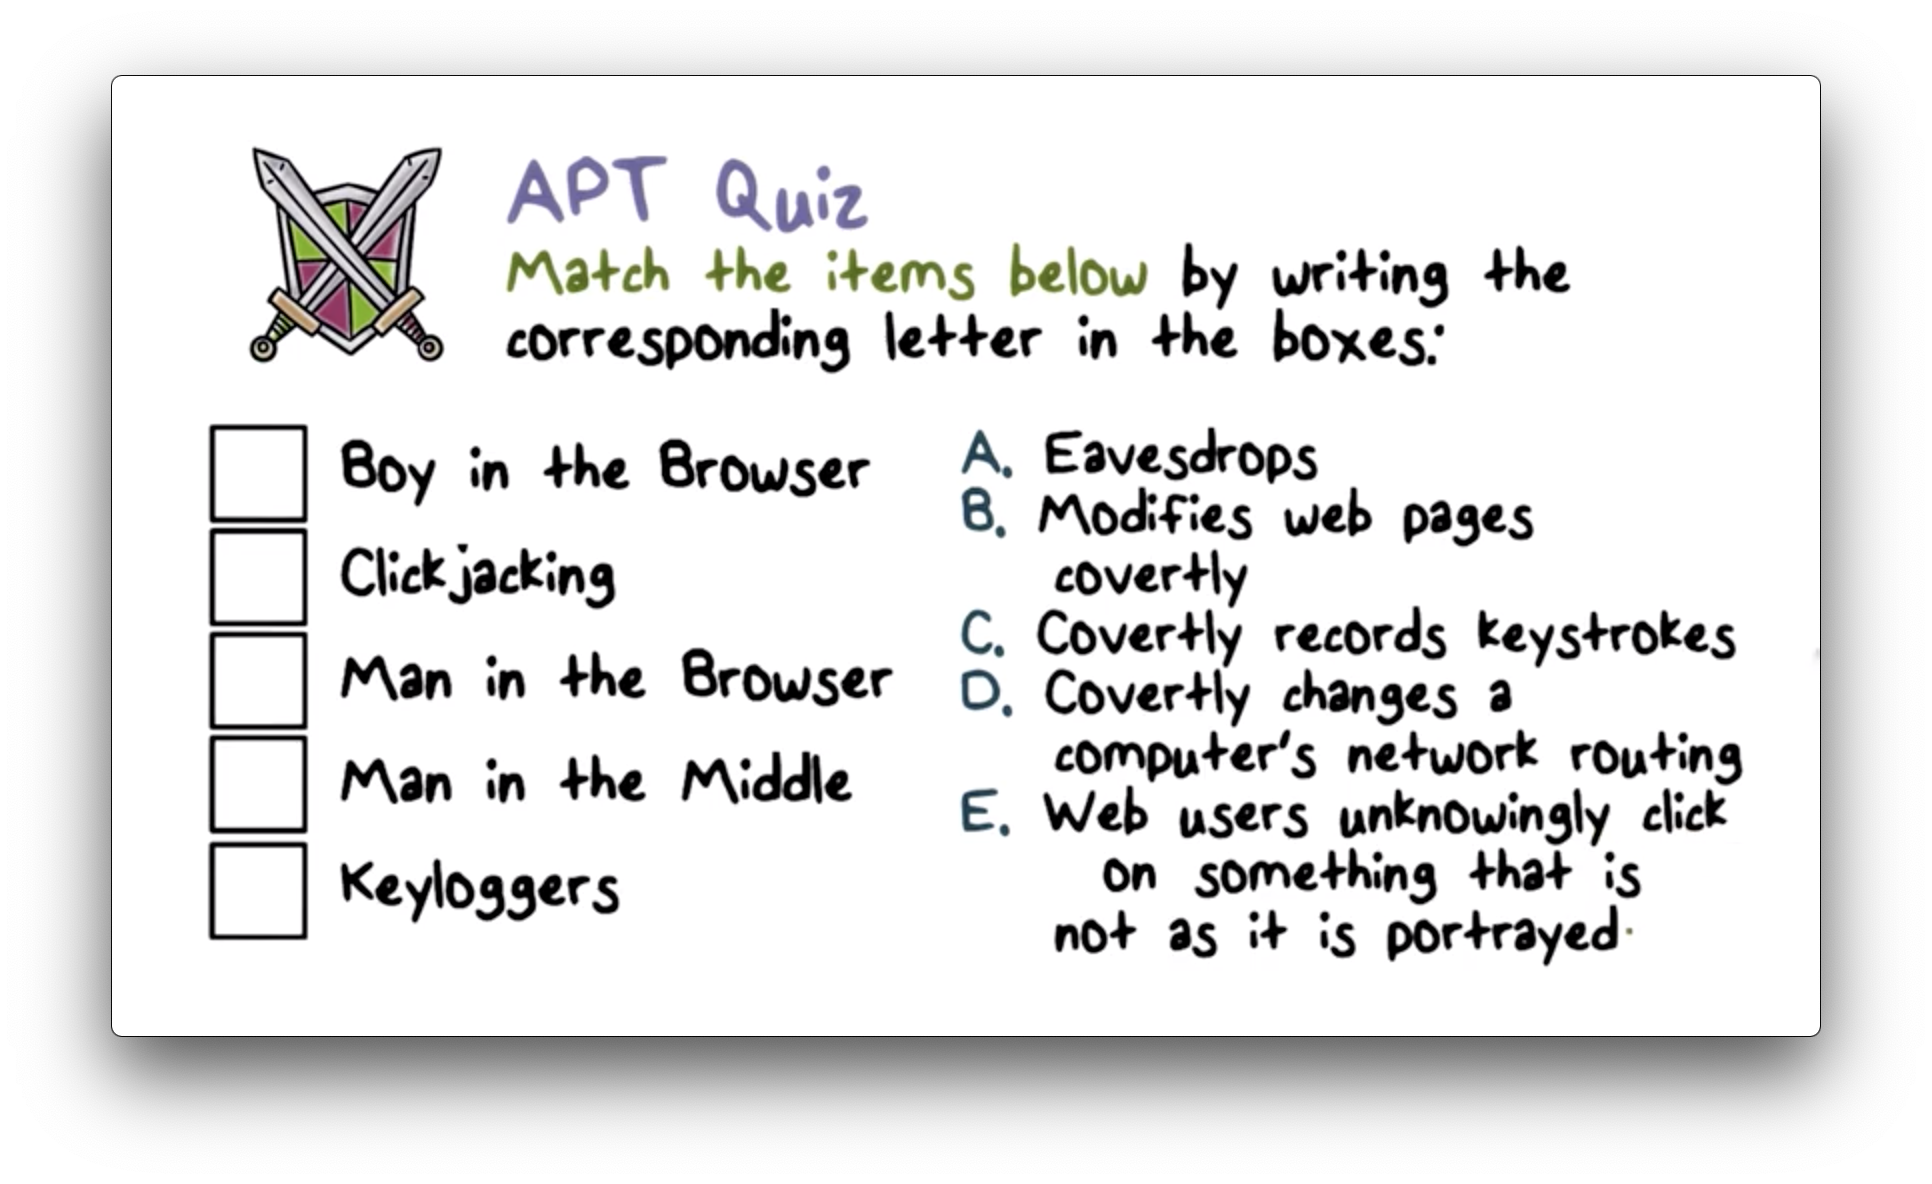 APT Quiz
Match the items below by writing the
corresponding letter in the boxes:
Boy in the Browser
Clickjacking
Man in the Browser
Man in the Middle
Keyloggers
A. Eavesdrops
B. Modifies web pages
covertly
C. Covertly records keystrokes
D. Covertly changes a
computer's network routing
E. Web users unknowingly click
on something that is
not as it is portrayed.